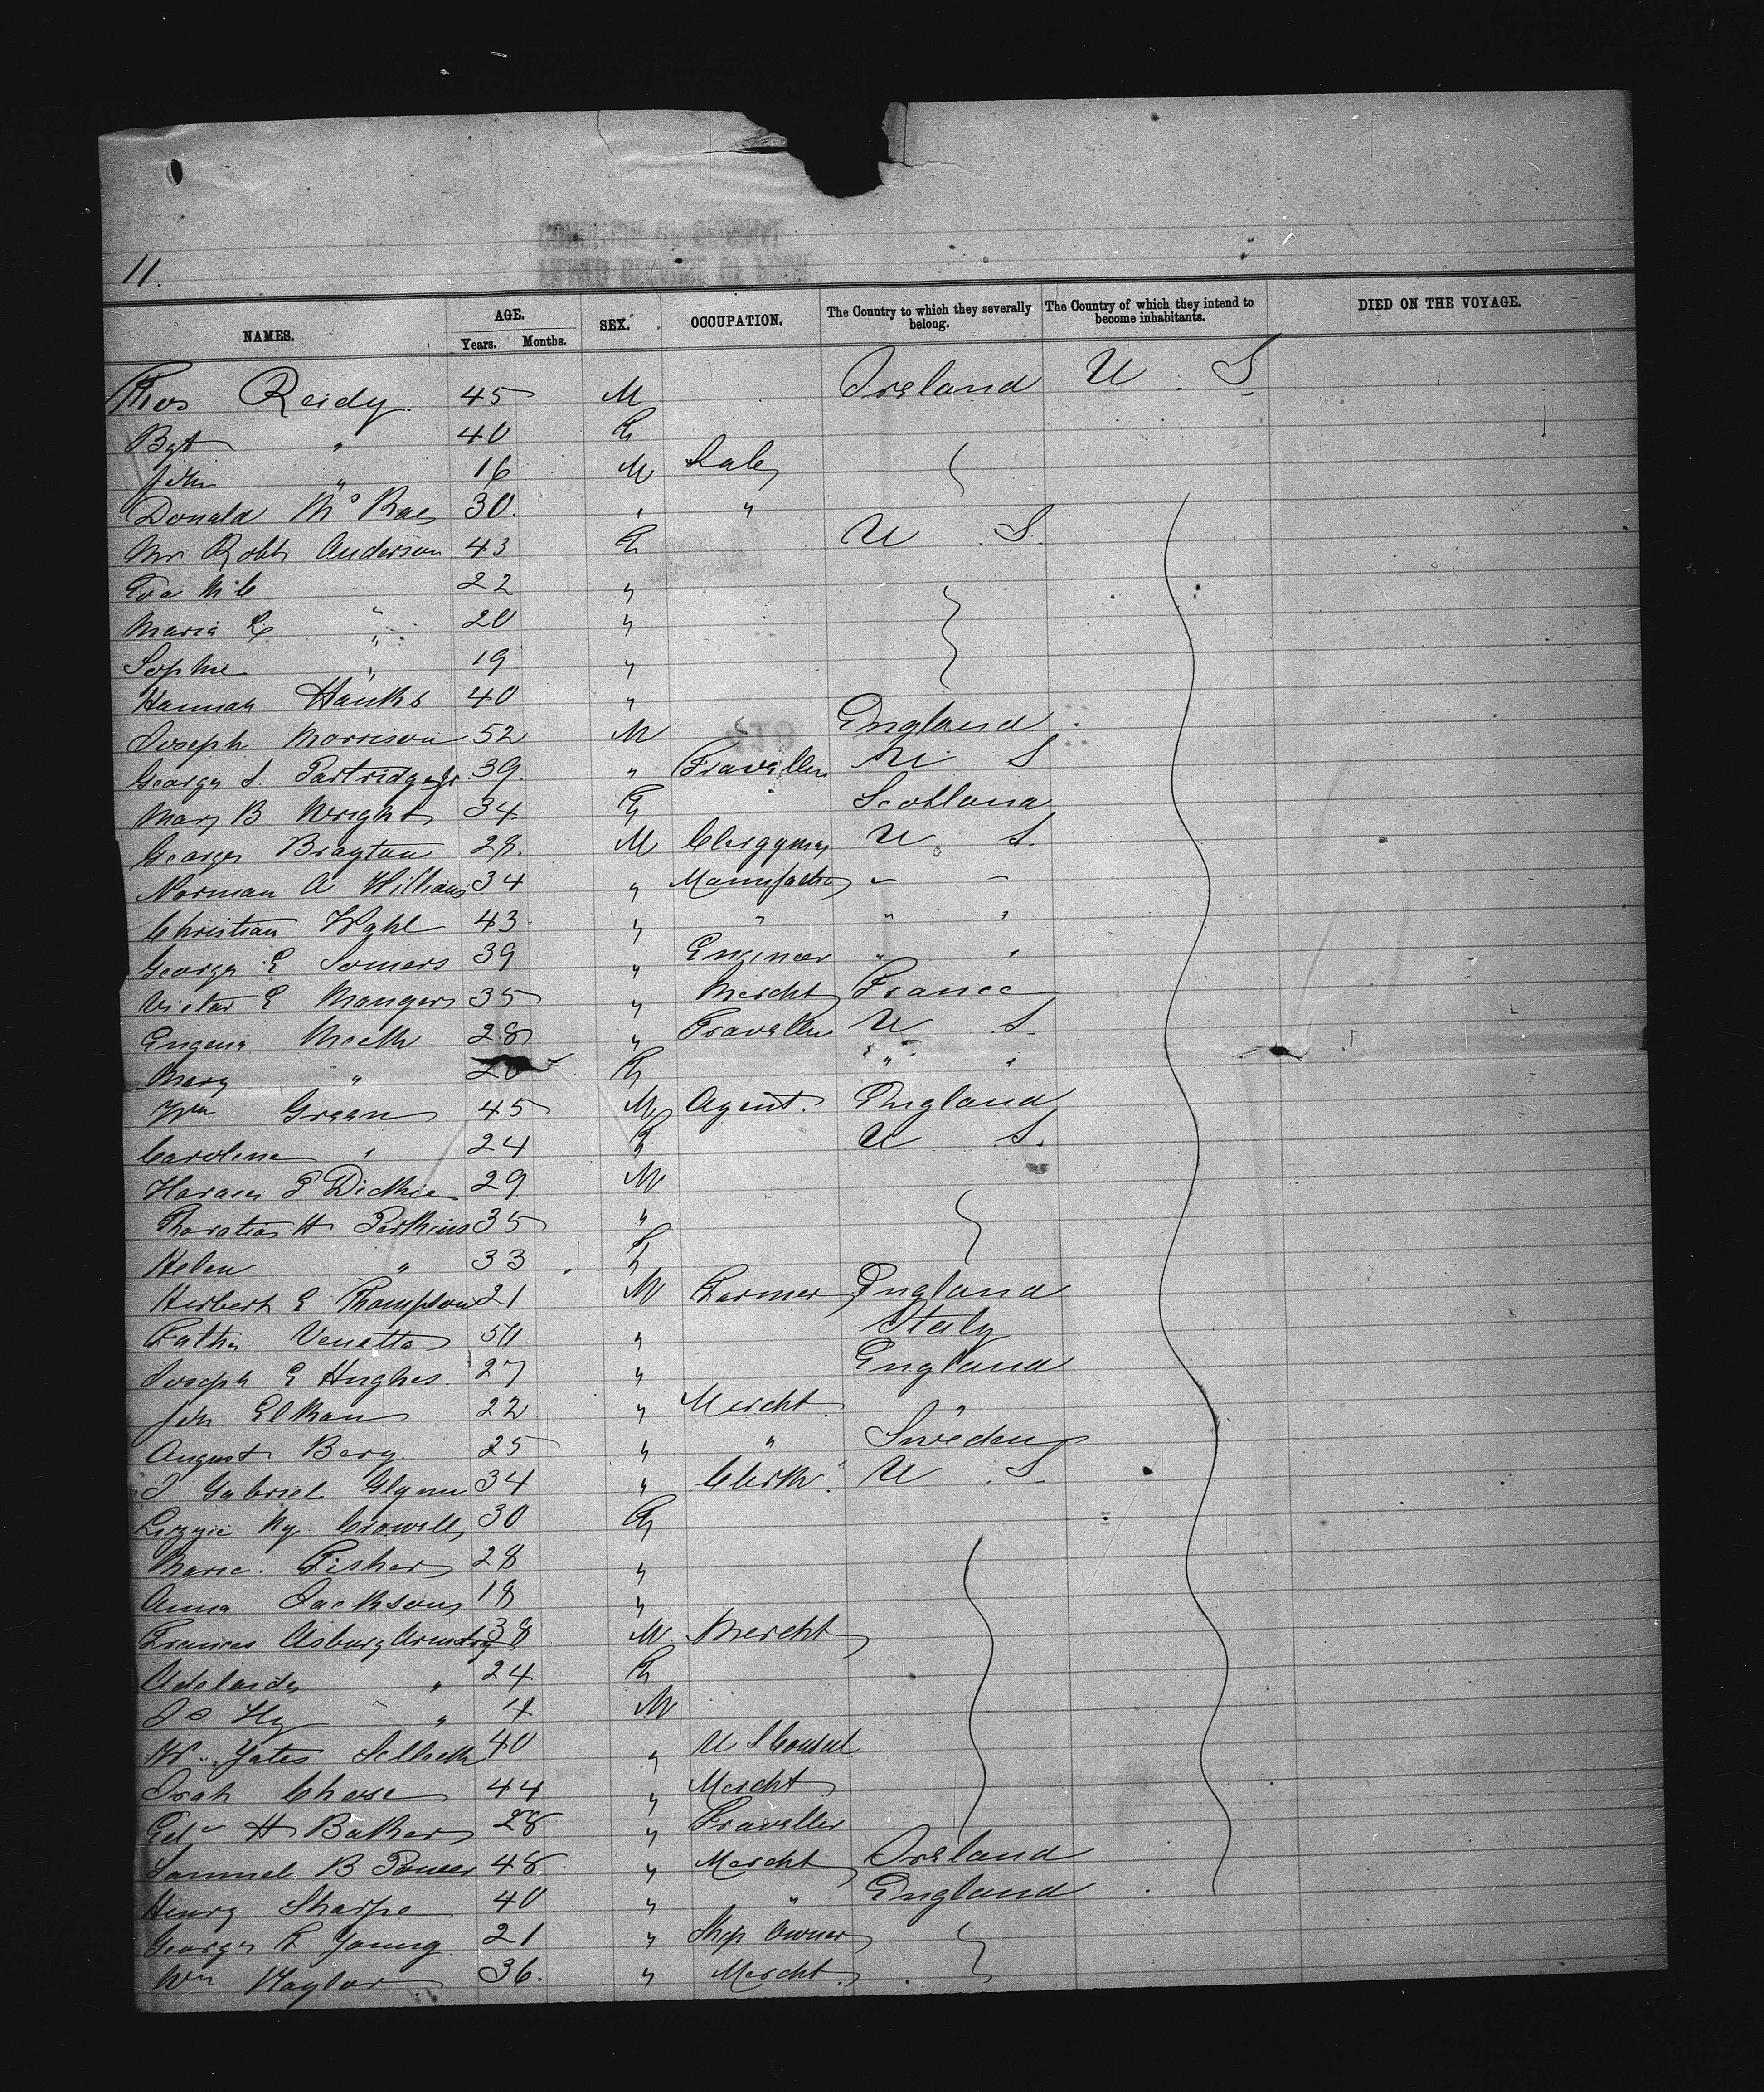 11.
NAMES. AGE. Years. Months. SEX. OCCUPATION. The Country to which they severally belong. The Country of which they intend to become inhabitants. DIED ON THE VOYAGE.
Thos Reidy 45 M Ireland U. S
Bgt " 40 F
John " 16 M Lab
Donald McRae 30. " "
Mr Robt Anderson 43 F U S.
Eva M C " 22 "
Maria L " 20 "
Sophie " 19 "
Hannah Hanks 40 "
Joseph Morrison 52 M England
George S. Partridge Jr 39. " Traveller U S
Mary B Wright 34 F Scotland
George Brayton 28. M Clergyman U S.
Norman A Williams 34 " Manufactr " "
Christian Wahl 43 " " " "
George E Somers 39 " Engineer " "
Victor E Mauger 35 " Mercht France
Eugene Meeth 28 " Traveller U S.
Mary " 20 F " "
Wm Green 45 M Agent. England
Caroline " 24 F U S.
Horace P Dickie 29 M
Horatio H Perkins 35 "
Helen " 33 F
Herbert E Thompson 21 M Farmer England
Venetta 50 " Italy
Joseph E Hughes. 27 " England
John Elkan 22 " Mercht. "
August Berg 25 " " Sweden
J Gabriel Glynn 34 " Clerk. U S
Lizzie Hy. Crowell 30 F
Marie. Fisher 28 "
Anna Jackson 18 "
Frances Asbury Armstrg 38 M Mercht
Adelaide " 24 F
Jo Hy " 4 M
W. Yates Selleck 40 " U S Consul
Irah Chase 44 " Mercht
Edw H Baker 28 " Traveller
Samuel B Power 48 " Mercht Ireland
Henry Sharpe 40 " " England
George F Young. 21 " Ship Owner
Wm Naylor 36. " Mercht.